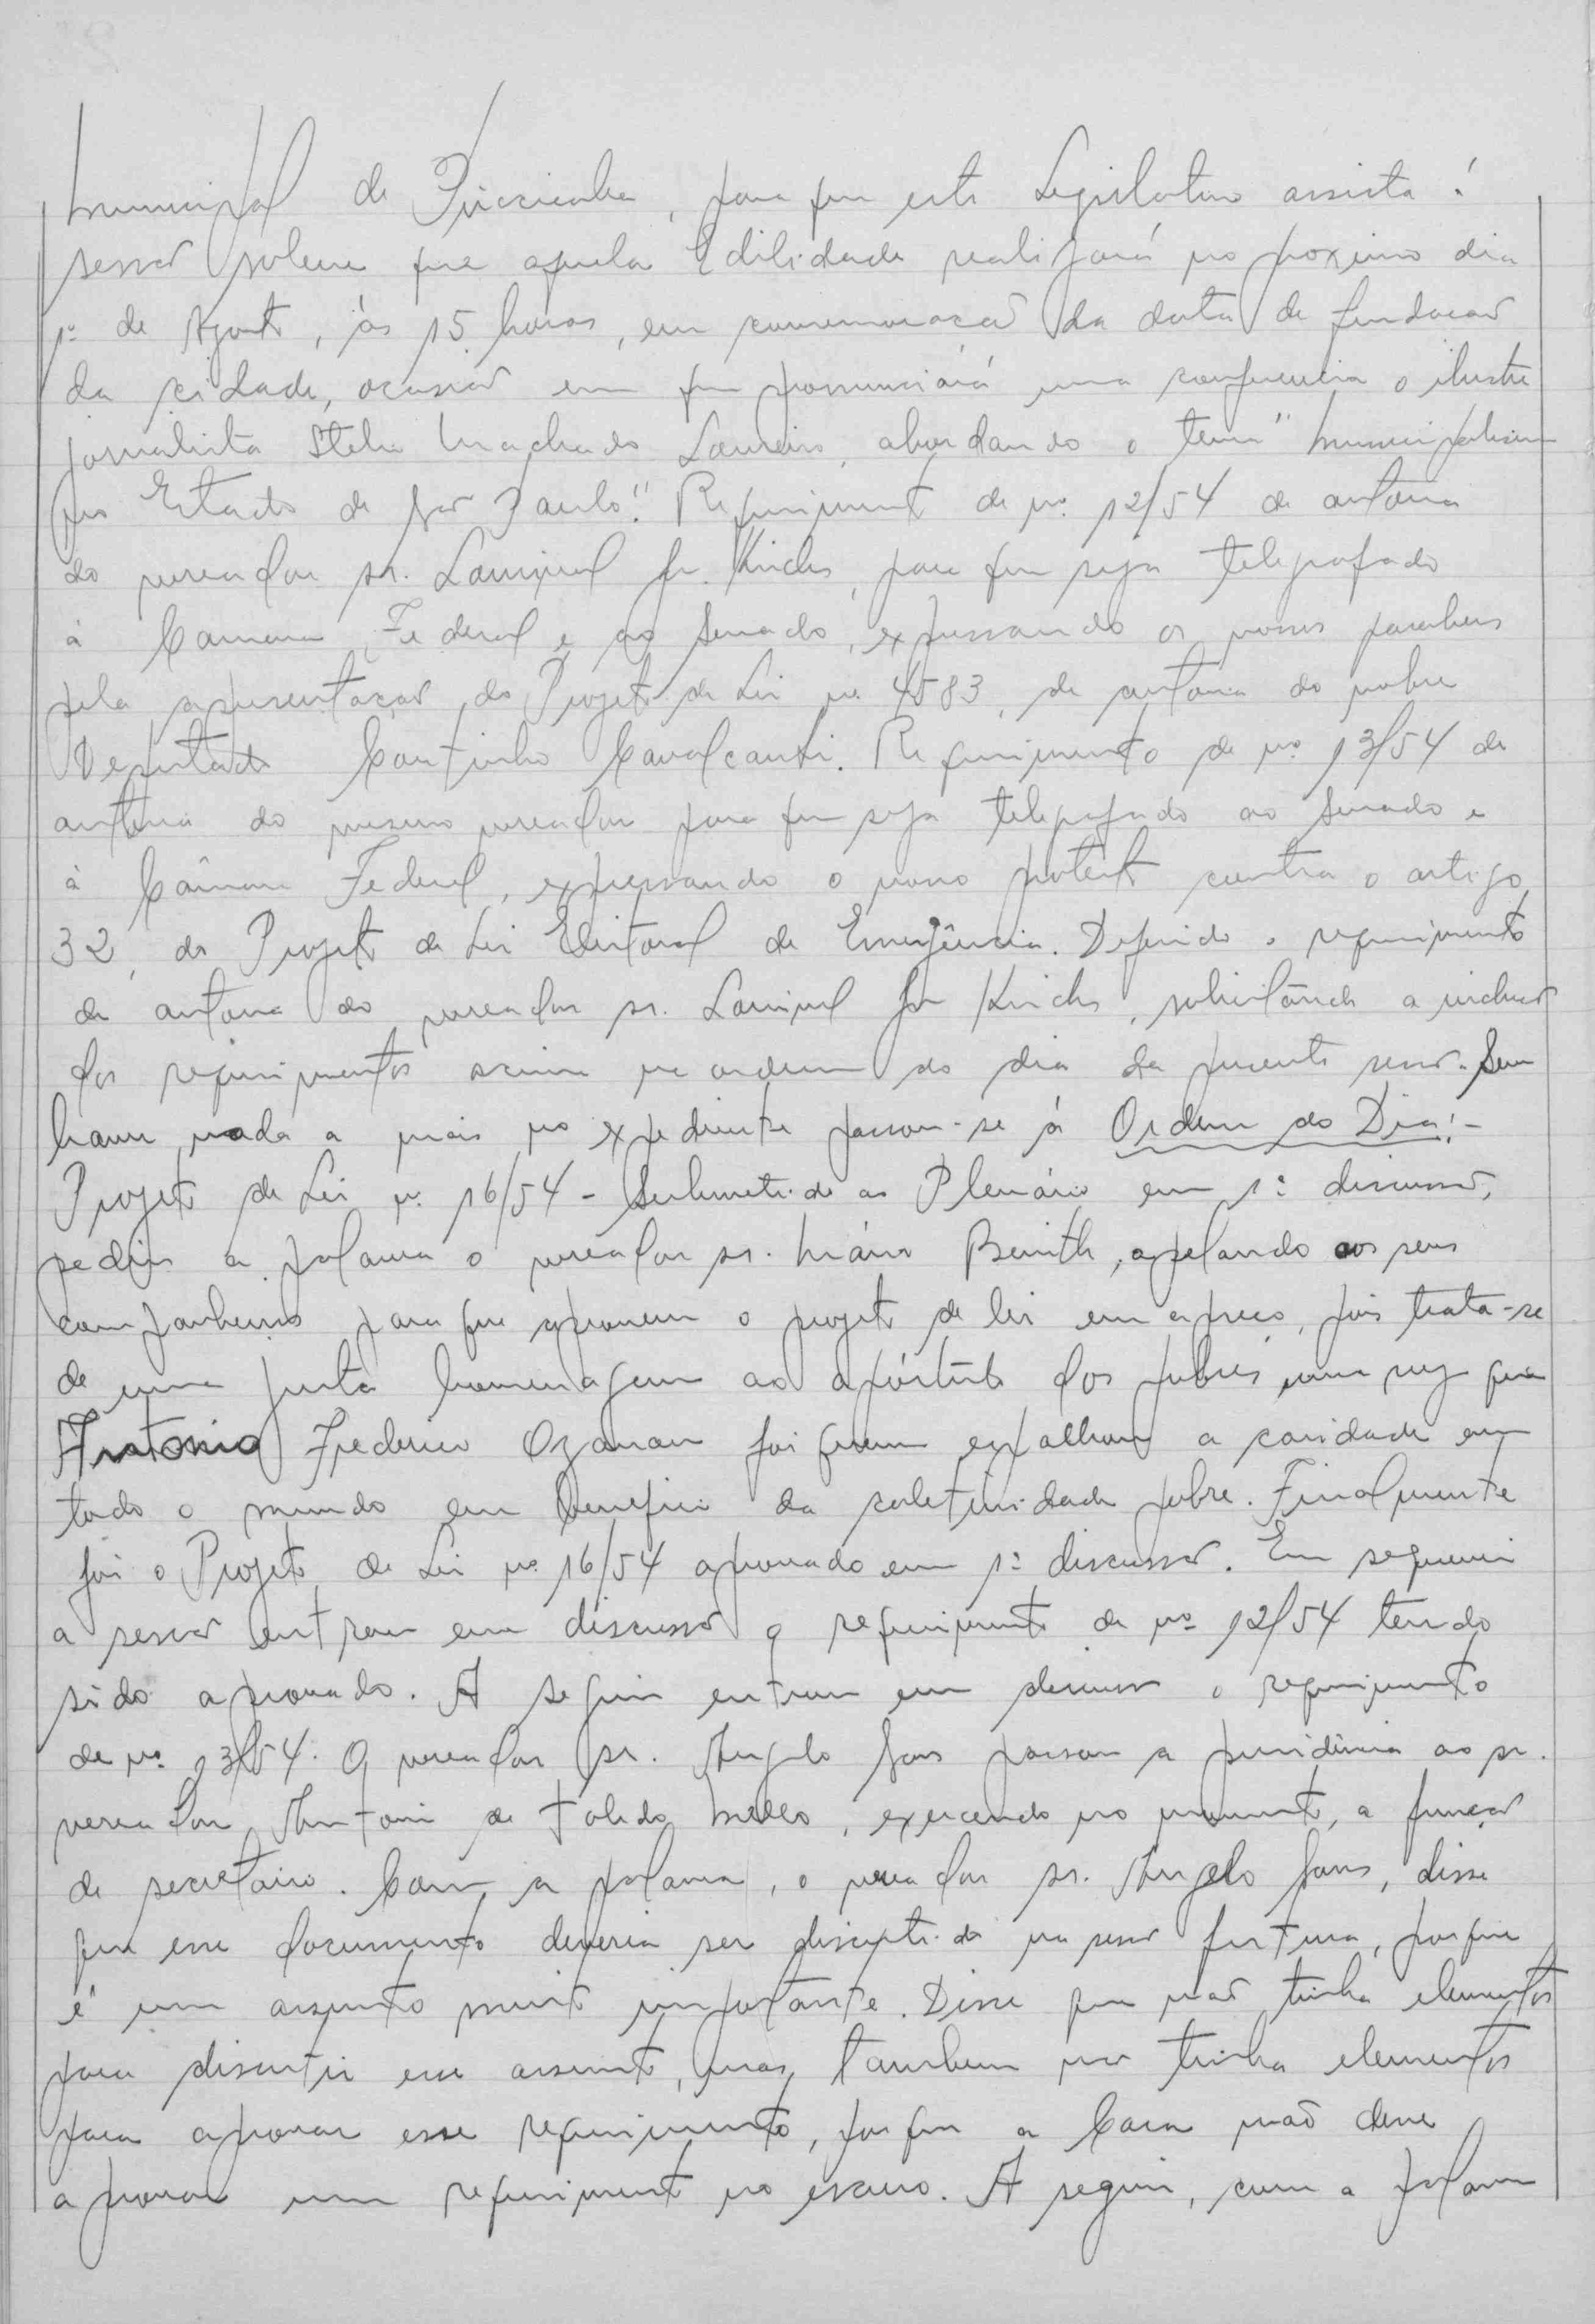 Municipal de Piracicaba, para que este Legislativo assista á
sessão solene que aquela Edilidade realizará no proximo dia
1º de Agosto, ás 15 horas, em comemoração da data de fundação
da cidade, ocasião em que pronunciará uma conferencia o ilustre
jornalista Stelio Machado Loureiro, abordando o tema "Municipalismo
no Estado de São Paulo". Requerimento de nº 12/54 de autoria
do vereador sr. Lourival Jr. , para que seja telegrafado
á Camara Federal e ao Senado, expressando os nossos parabens
pela apresentação do Projeto de Lei nº 4583, de autoria do nobre
Deputado Coutinho Cavalcanti. Requerimento de nº 13/54 de
autoria do mesmo vereador para que seja telegrafado ao Senado e
à Câmara Federal, expressando o nosso protesto contra o artigo
32, do Projeto de Lei Eleitoral de Emergência. Deferido o requerimento
de autoria do vereador sr. Lourival Jr , solicitando a inclusão
dos requerimentos acima na ordem do dia da presente sessão. Sem
haver nada a mais no expediente passou-se á Ordem do Dia:-
Projeto de Lei nº 16/54 - Submetido ao Plenário em 1ª discussão,
pediu a palavra o vereador sr. Mário , apelando aos seus
companheiros para que aprovem o projeto de lei em apreço, pois trata-se
de uma justa homenagem ao dos pobres uma vez que
Antonio Frederico Ozanan foi quem espalhou a caridade em
todo o mundo em beneficio da coletividade pobre. Finalmente
foi o Projeto de Lei nº 16/54 aprovado em 1ª discussão. Em sequencia
a sessão entrou em discussão o requerimento de nº 12/54 tendo
sido aprovado. A seguir entrou em discussão o requerimento
de nº 13/54. O vereador sr. Angelo passou a presidência ao sr.
vereador Antonio de Toledo Mello, exercendo no momento, a função
de secretário. Com a palavra, o vereador sr. Angelo , disse
que esse documento deveria ser discutido na sessão futura, porque
é um assunto muito importante. Disse que não tinha elementos
para discutir esse assunto, mas, tambem não tinha elementos
para aprovar esse requerimento, porque a Casa não deve
aprovar um requerimento no escuro. A seguir, com a palavra